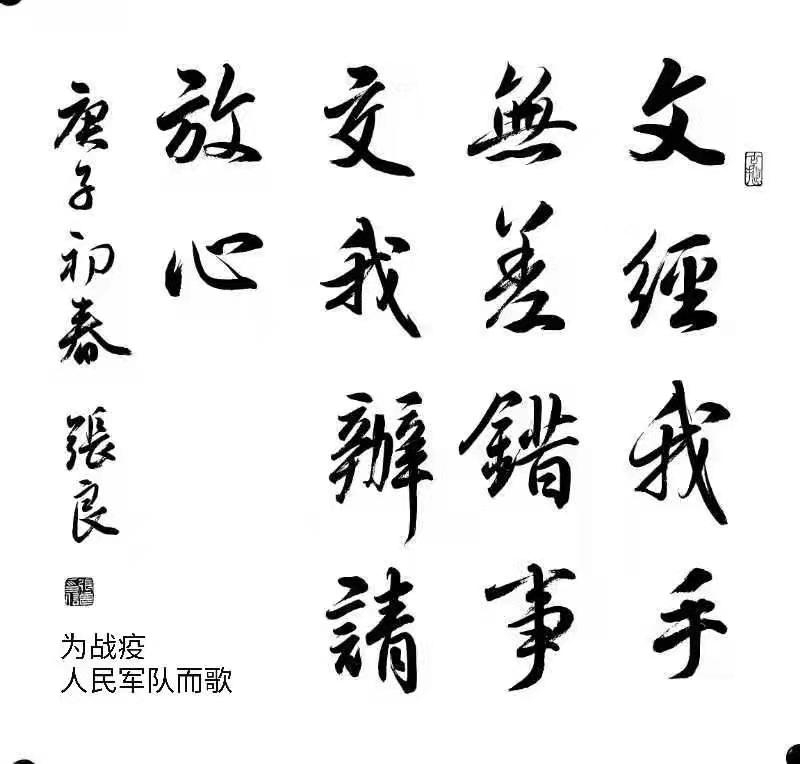 文經我手
無差錯事
交我辦請
放心
庚子初春 張良
为战疫
人民军队而歌